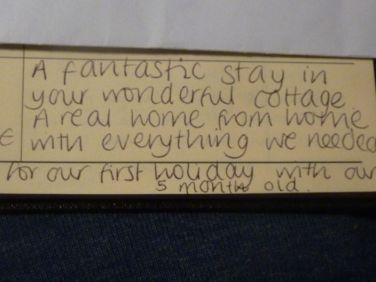 A fantastic stay in
your wonderful cottage
A real home from home
e with everything we needed
for our first holiday with our
5 month old.